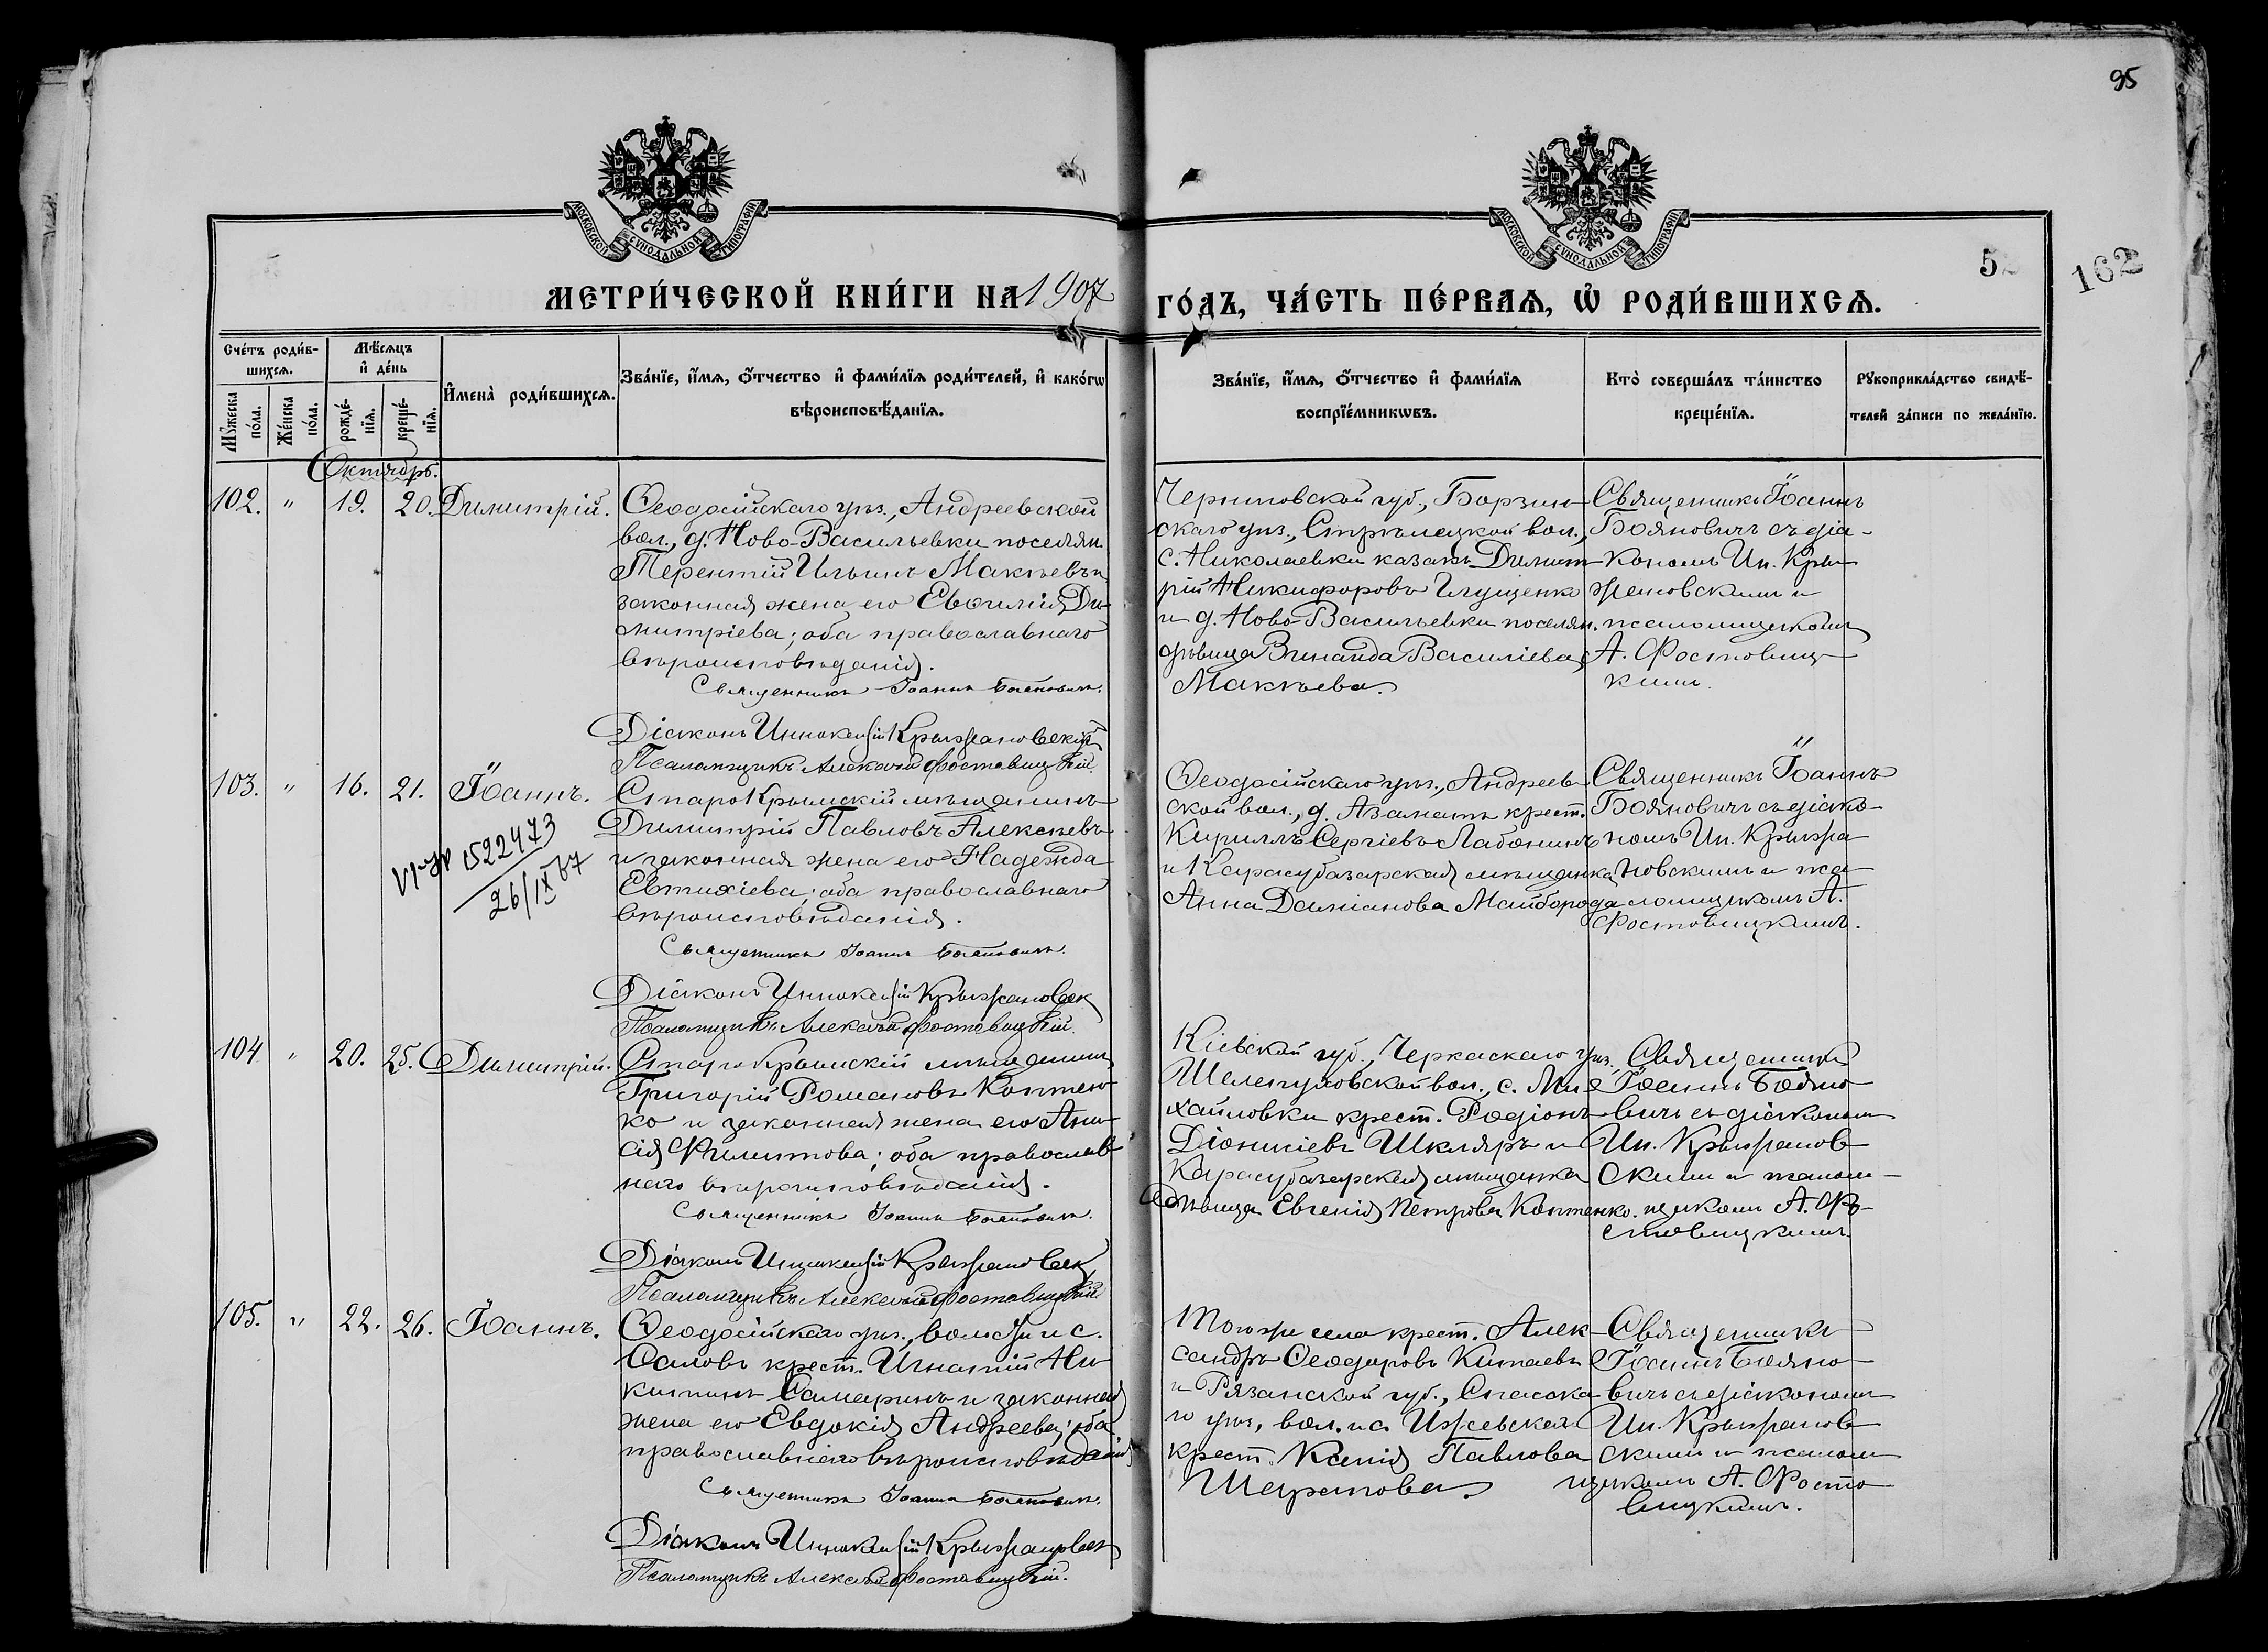 95
МОСКОВСКОЙ СУНОДАЛЬНОЙ ТИПОГРАФІИ
МОСКОВСКОЙ СУНОДАЛЬНОЙ ТИПОГРАФІИ
5
162
МЕТРИ́ЧЕСКОЙ КНИ́ГИ НА 1907 ГО́ДЪ, ЧА́СТЬ ПЕ́РВАѦ, Ѡ҆ РОДИ́ВШИХСѦ.
Сче́тъ роди́в-
шихсѧ.
Мꙋ́жеска по́ла.
Же́нска по́ла.
Мѣ́сѧцъ
и҆ де́нь
рожде́-
нїѧ.
креще́-
нїѧ.
И҆мена̀ роди́вшихсѧ.
Зва́нїе, и҆́мѧ, ѻ҆́тчество и҆ фами́лїѧ роди́телей, и҆ како́гѡ
вѣроисповѣ́данїѧ.
Зва́нїе, и҆́мѧ, ѻ҆́тчество и҆ фами́лїѧ
воспрїе́мникѡвъ.
Кто̀ соверша́лъ та́инство
креще́нїѧ.
Рꙋкоприкла́дство свидѣ́-
телей за́писи по жела́нїю.
Октябрь.
102. " 19. 20. Димитрій.
Ѳеодосійскаго уѣз., Андреевской
вол., д. Ново-Васильевки поселян.
Терентій Ильинъ Макѣевъ и
законная жена его Евѳимія Ди-
митріева; оба православнаго
вѣроисповѣданія.
Священникъ Іоаннъ Бояновичъ.
Діаконъ Иннокентій Крыжановскій
Псаломщикъ Алексѣй Фостовицкій.
Черниговской губ., Борзин-
скаго уѣз., Стрѣлецкой вол.,
с. Николаевки казакъ Димит-
рій Никифоровъ Глущенко
и д. Ново-Васильевки поселян.
дѣвица Василіева
Макѣева.
Священникъ Іоаннъ
Бояновичъ съ діа-
кономъ Ин. Кры-
жановскимъ и
псаломщикомъ
А. Фостовиц-
кимъ.
103. " 16. 21. Іоаннъ.
1522473
26/IX 67
Старо-Крымскій мѣщанинъ
Димитрій Павловъ Алексѣевъ
и законная жена его Надежда
Евтихіева; оба православнаго
вѣроисповѣданія.
Священникъ Іоаннъ Бояновичъ.
Діаконъ Иннокентій Крыжановск
Псаломщикъ Алексѣй Фостовицкій.
Ѳеодосійскаго уѣз., Андреев-
ской вол., д. Азаматъ крест.
Кириллъ Сергіевъ Лабонинъ
и Карасубазарская мѣщанка
Анна Даміанова Майборода
Священникъ Іоаннъ
Бояновичъ съ діако-
номъ Ин. Крыжа-
новскимъ и пса-
ломщикомъ А.
Фостовицкимъ.
104 " 20. 25. Димитрій.
Старо-Крымскій мѣщанинъ
Григорій Романовъ Коптен-
ко и законная жена его Ани-
сія Филиппова; оба православ-
наго вѣроисповѣданія.
Священникъ Іоаннъ Бояновичъ.
Діаконъ Иннокентій Крыжановск
Псаломщикъ Алексѣй Фостовицкій
Кіевской губ., Черкаскаго уѣз.,
Шелепуховской вол., с. Ми-
хайловки крест. Родіонъ
Діонисіевъ Шкляръ и
Карасубазарская мѣщанка
дѣвица Евгенія Петрова Коптенко.
Священникъ
Іоаннъ Бояно-
вичъ съ діакономъ
Ин. Крыжанов-
скимъ и псалом-
щикомъ А. Фо-
стовицкимъ.
105. " 22. 26. Іоаннъ.
Ѳеодосійскаго уѣз., волости и с.
Саловъ крест. Игнатій Ни-
китинъ Самаринъ и законная
жена его Евдокія Андреева; оба
православнаго вѣроисповѣданія
Священникъ Іоаннъ Бояновичъ.
Діаконъ Иннокентій Крыжановск
Псаломщикъ Алексѣй Фостовицкій.
Того же села крест. Алек-
сандръ Ѳеодоровъ Китаевъ
и Рязанской губ., Спасска-
го уѣз., вол. и с. Ижевская
крест. Ксенія Павлова
Шарапова.
Священникъ
Іоаннъ Бояно-
вичъ съ діакономъ
Ин. Крыжанов-
скимъ и псалом-
щикомъ А. Фосто-
вицкимъ.